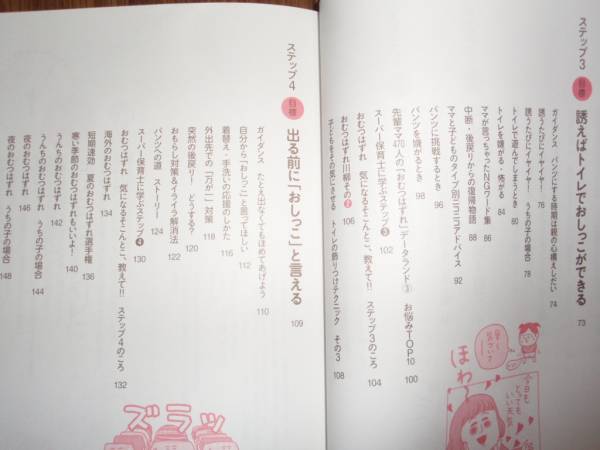 ステップ3 目標 誘えばトイレでおしっこができる 73
ガイダンス パンツにする時期は親の心構えしだい 74
誘うたびにイヤイヤ！ 76
誘うたびにイヤイヤ！ うちの子の場合 78
トイレで遊んでしまうとき 80
トイレを嫌がる・怖がる 84
ママが言っちゃったNGワード集 86
中断・後戻りからの復帰物語 88
ママと子どものタイプ別ニコニコアドバイス 92
パンツに挑戦するとき 96
パンツを嫌がるとき 98
先輩ママ470人の「おむつはずれ」データランド① お悩みTOP10 100
スーパー保育士に学ぶステップ❸ 102
おむつはずれ 気になるそこんとこ、教えて!! ステップ3のころ 104
おむつはずれ川柳その❷
子どもをその気にさせる トイレの飾りつけテクニック その3 108
早く
ほわ
今日も
とっても
いい天気
ステップ4 目標 出る前に「おしっこ」と言える 109
ガイダンス たとえ出なくてもほめてあげよう 110
自分から「おしっこ」と言ってほしい 112
着替え・手洗いの応援のしかた 116
外出先での「万が一」対策 118
突然の後戻り！ どうする？ 120
おもらし対策&イライラ解消法 122
パンツへの道 ストーリー 124
スーパー保育士に学ぶステップ❹ 130
おむつはずれ 気になるそこんとこ、教えて!! ステップ4のころ 132
海外のおむつはずれ 134
短期速効 夏のおむつはずれ選手権 136
寒い季節のおむつはずれもいいよ！ 140
うんちのおむつはずれ 142
うんちのおむつはずれ うちの子の場合 144
夜のおむつはずれ 146
夜のおむつはずれ うちの子の場合 148
ズラッ